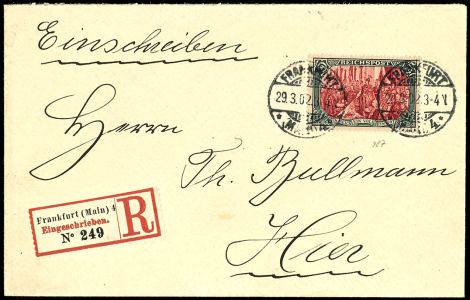 Einschreiben
REICHSPOST
FRANKFURT
29.3.02.
* (MAIN) 4. *
FRANKFURT
2.3-4V.
4. *
Herrn
Th. Bullmann
Hier
Frankfurt (Main) 4
Eingeschrieben.
Nº 249
R